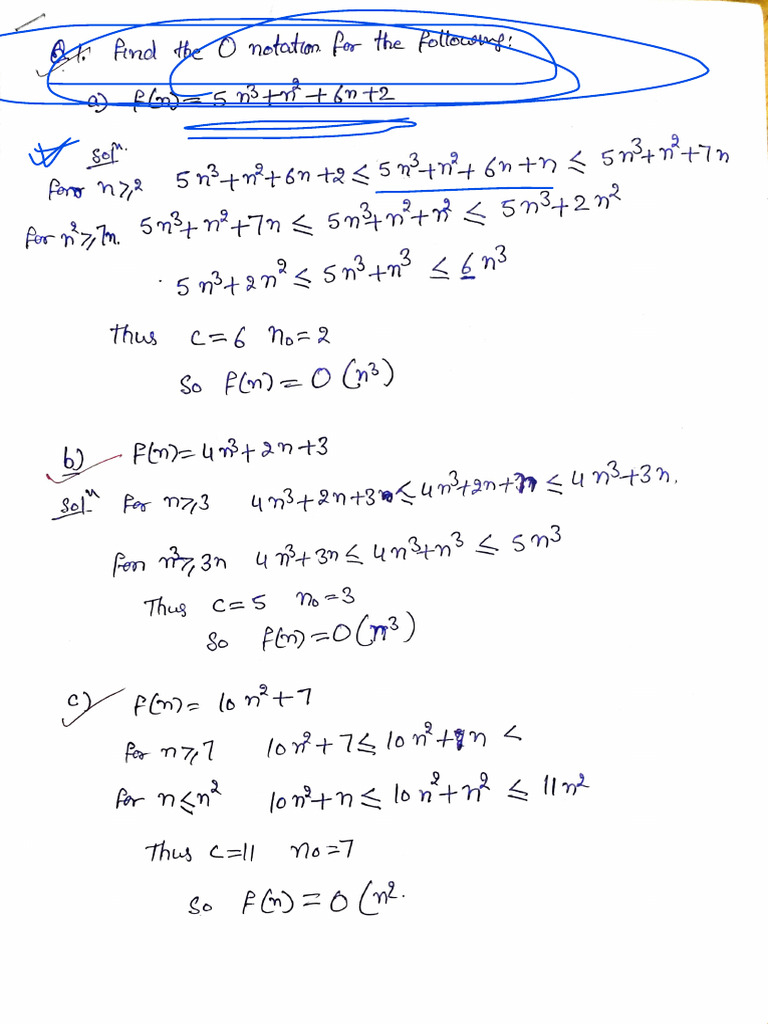 Q1. Find the O notation for the following:
a) f(n) = 5n³+n²+6n+2
Solⁿ.
for n≥2 5n³+n²+6n+2 ≤ 5n³+n²+6n+n ≤ 5n³+n²+7n
for n²≥7n. 5n³+n²+7n ≤ 5n³+n²+n² ≤ 5n³+2n²
5n³+2n² ≤ 5n³+n³ ≤ 6n³
Thus c=6 n₀=2
So f(n) = O(n³)
b) f(n) = 4n³+2n+3
Solⁿ for n≥3 4n³+2n+3 ≤ 4n³+2n+n ≤ 4n³+3n.
for n³≥3n 4n³+3n ≤ 4n³+n³ ≤ 5n³
Thus c=5 n₀=3
So f(n) = O(n³)
c) f(n) = 10n²+7
for n≥7 10n²+7 ≤ 10n²+n <
for n≤n² 10n²+n ≤ 10n²+n² ≤ 11n²
Thus c=11 n₀=7
So f(n) = O(n².